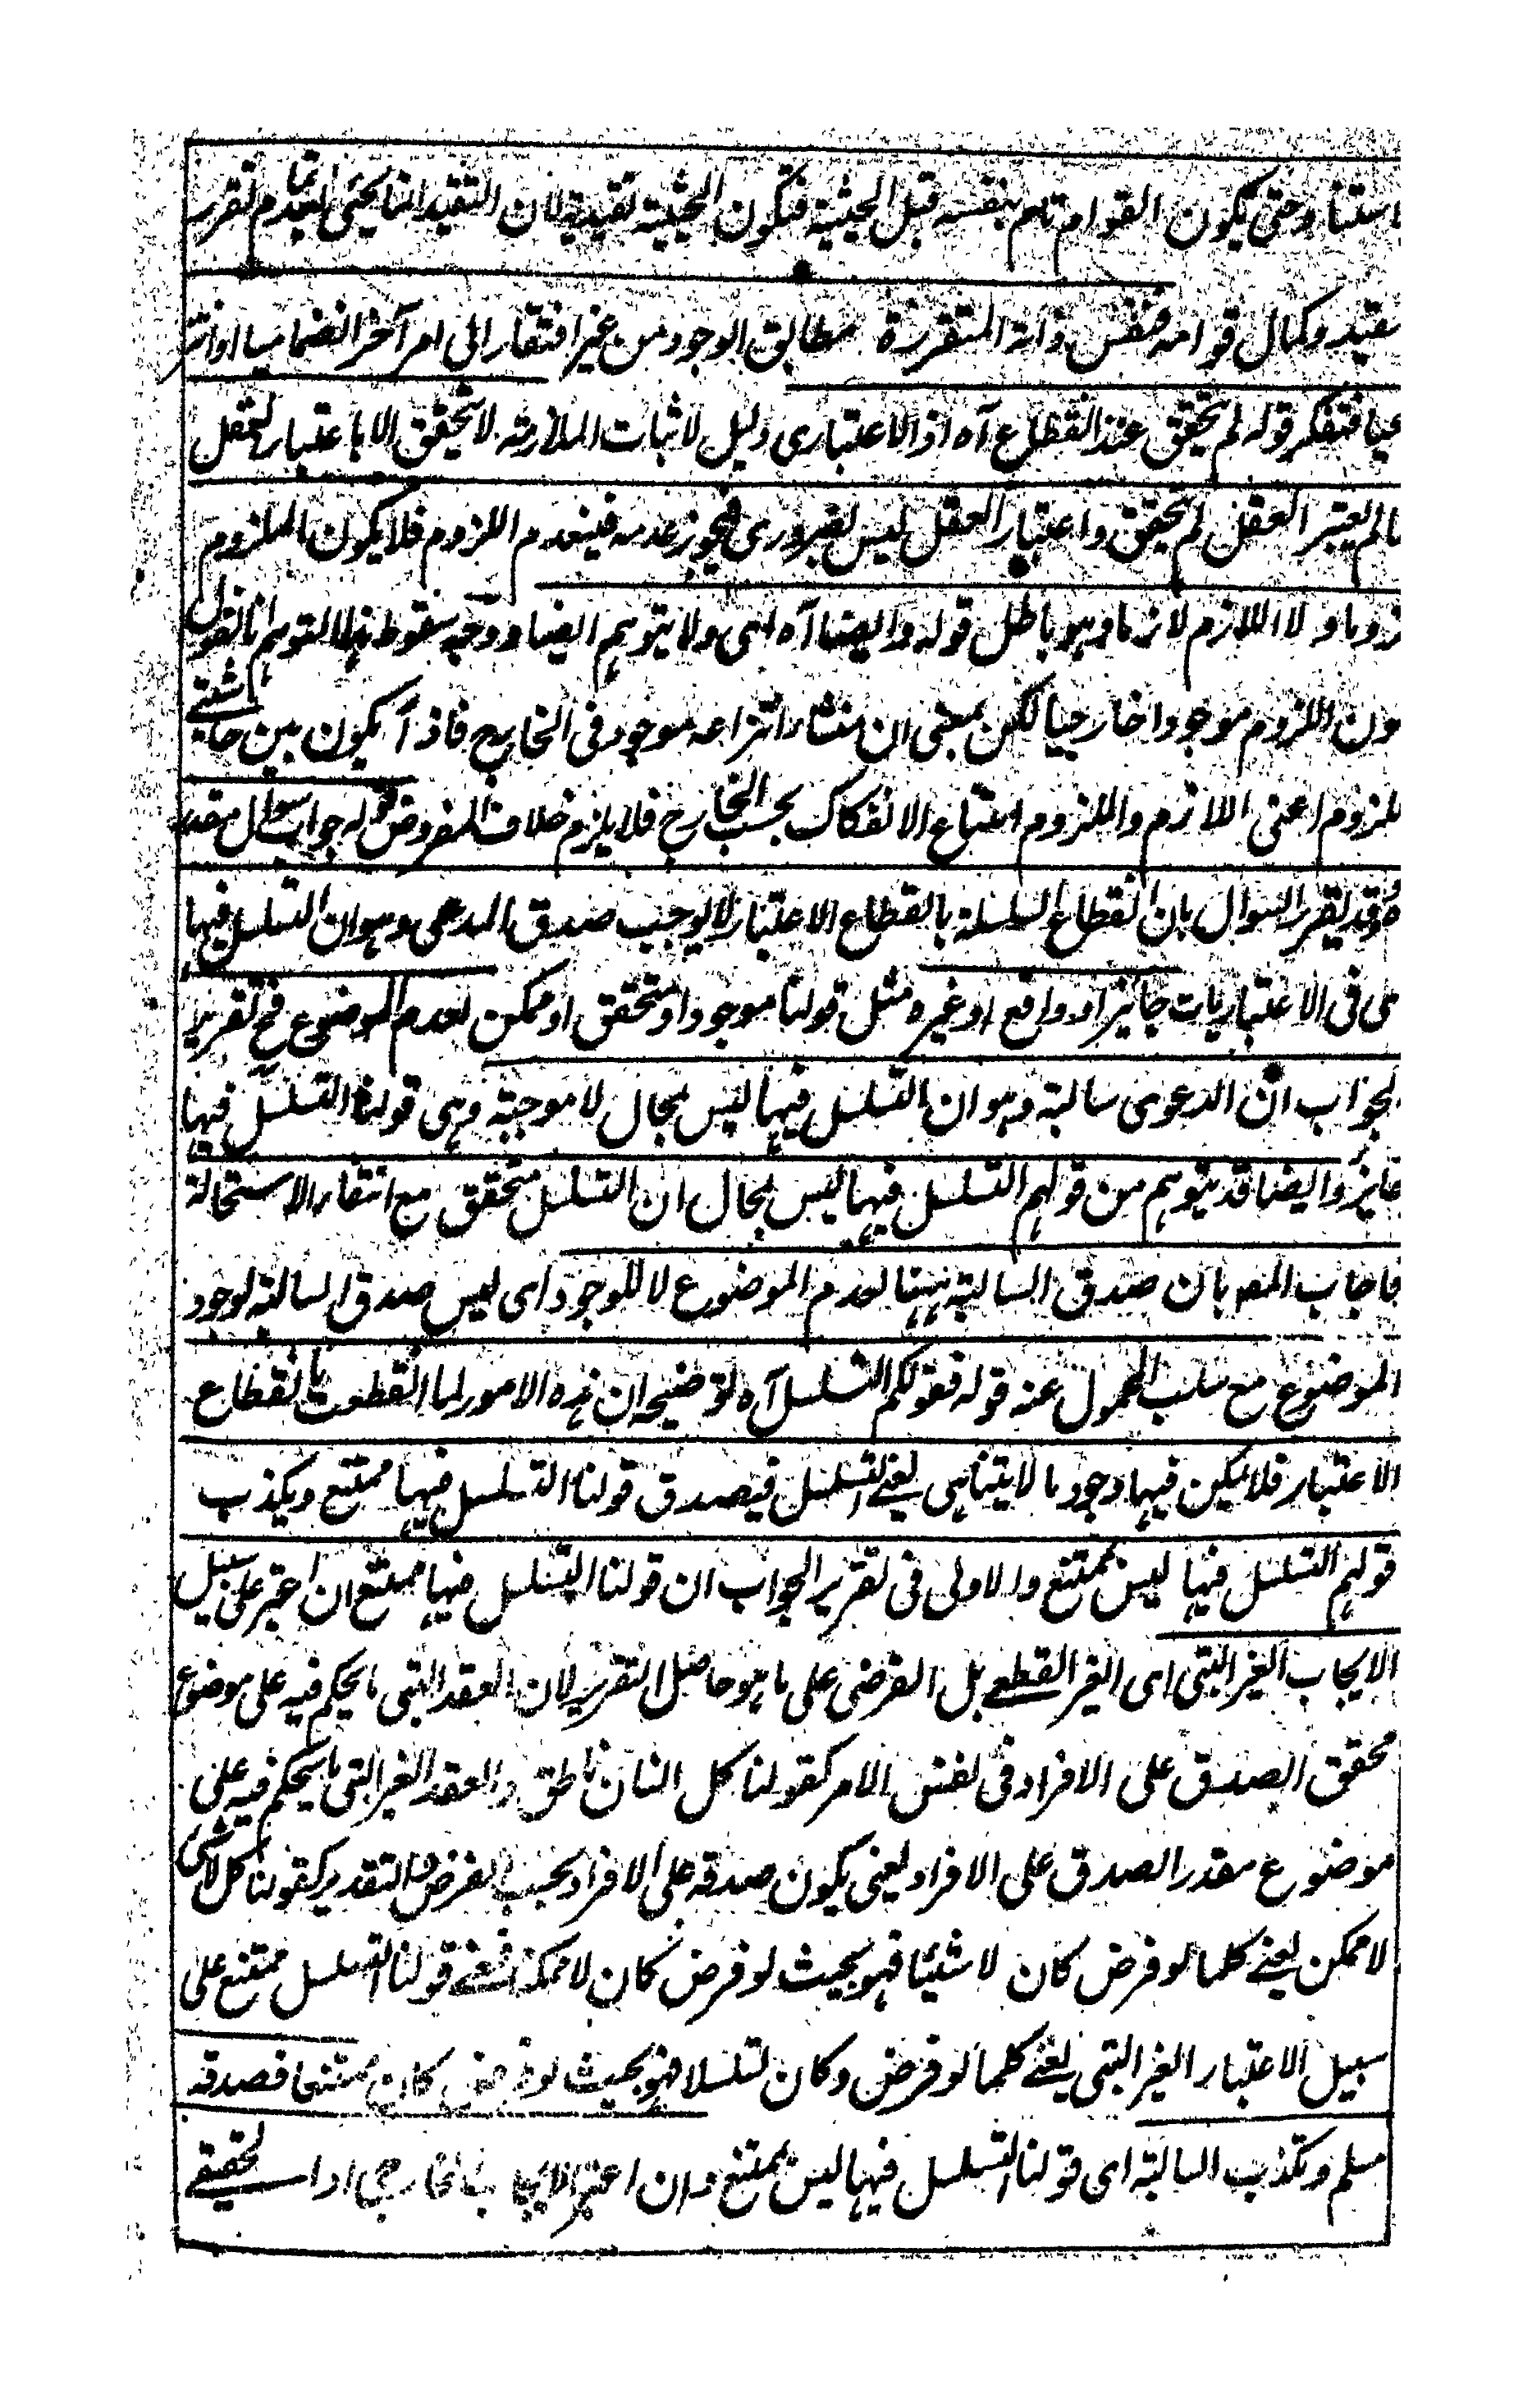 استناد حتى يكون القوام تاما بنفسه قبل الحيثية فتكون الحيثية تقييدية لان التقييد انما يجئ بعد تمام تقرر
وكمال قوامه فنفس ذاته المتقررة مطابق الوجود من غير افتقار الى امر آخر انضماميا او
فتفكر قوله لم يتحقق عند انقطاع آه اذ الاعتبارى دليل لاثبات الملازمة لا يتحقق الا باعتبار العقل
مالم يعتبر العقل لم يتحقق واعتبار العقل ليس بضرورى فيجوز عدمه فينعدم اللزوم فلا يكون الملزوم
ولا اللازم لازما وهو باطل قوله وايضا آه اى ولا يتوهم ايضا ووجه سقوط هذا التوهم انا نقول
اللزوم موجودا خارجيا لكن بمعنى ان منشاء انتزاعه موجود فى الخارج فاذاً يكون بين حاشيتى
اعنى اللازم والملزوم امتناع الانفكاك بحسب الخارج فلا يلزم خلاف المفروض قوله جواب سوال مقدر
وقد يقرر السوال بان انقطاع السلسلة بانقطاع الاعتبار لا يوجب صدق المدعى وهو ان التسلسل فيها
فى الاعتباريات جايز او واقع او غيره مثل قولنا موجود او متحقق او ممكن لعدم الموضوع فح تقرير
الجواب ان الدعوى سالبة وهو ان التسلسل فيها ليس بمحال لا موجبة وهى قولنا التسلسل فيها
جايز وايضا قد يتوهم من قولهم التسلسل فيها ليس بمحال ان التسلسل متحقق مع انتفاء الاستحالة
فاجاب المصـ بان صدق السالبة ههنا لعدم الموضوع لا للوجود اى ليس صدق السالبة لوجود
الموضوع مع سلب المحمول عنه قوله فقولكم التسلسل آه توضيحه ان هذه الامور لما انقطعت بانقطاع
الاعتبار فلا يمكن فيها وجود ما لا يتناهى يعنى التسلسل فيصدق قولنا التسلسل فيها ممتنع ويكذب
قولهم التسلسل فيها ليس بممتنع والاولى فى تقرير الجواب ان قولنا التسلسل فيها ممتنع ان اعتبر على سبيل
الايجاب الغير البتى اى الغير القطعى بل الفرضى على ما هو حاصل التقرير لان العقد البتى ما يحكم فيه على موضوع
محقق الصدق على الافراد فى نفس الامر كقولنا كل انسان ناطق والعقد الغير البتى ما يحكم فيه على
موضوع مقدر الصدق على الافراد يعنى يكون صدقه على الافراد بحسب الفرض والتقدير كقولنا كل لاشئ
لا ممكن يعنى كلما لو فرض كان لا شيئا فهو بحيث لو فرض كان لا ممكنا فمعنى قولنا التسلسل ممتنع على
سبيل الاعتبار الغير البتى يعنى كلما لو فرض وكان تسلسلا فهو بحيث لو فرض كان ممتنعا فصدقه
مسلم وتكذب السالبة اى قولنا التسلسل فيها ليس بممتنع وان اعتبر الايجاب الخارجى او الحقيقى